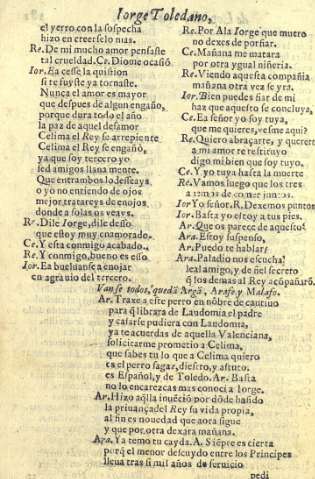 Iorge Toledano,
el yerro con la sospecha
hizo en creerselo mas.
Re. De mi mucho amor pensaste
tal crueldad. Ce. Dione ocasiõ
Ior. Ea cesse la quistion
si te fuyste ya tornaste.
Nunca el amor es mayor
que despues de algun engaño,
porque dura todo el año
la paz de aquel desamor
Celima el Rey se arrepiente
Celima el Rey se engañó,
ya que soy tercero yo
sed amigos llana mente.
Que entrambos lo desseays
o yo no entiendo de ojos
mejor tratareys de enojos
donde a solas os veays.
Re. Dile Iorge, dile desso
que estoy muy enamorado.
Ce. Y esta conmigo acabado,
Re. Y conmigo, bueno es esso
Ior. Ea bueluanse a enojar
en agrauio del tercero.
Re. Por Ala Iorge que muero
no dexes de porfiar.
Ce. Mañana me matara
por otra ygual niñeria.
Re. Viendo aquesta compañia
mañana otra vez se yra.
Ior. Bien puedes fiar de mi
haz que aquesto se concluya,
Ce. Ea señor yo soy tuya,
que me quieres, vesme aqui?
Re. Quiero abraçarte, y quererte
a mi amor te restituyo
digo mi bien que soy tuyo,
Ce. Y yo tuya hasta la muerte
Re. Vamos luego que los tres
a comer juntos.
Ior Yo señor. R. Dexemos puntos
Ior. Basta yo estoy a tus pies.
Ar. Que os parece de aquesto?
Ara. Estoy suspenso,
Ar. Puedo te hablar?
Ara. Paladio nos escucha?
leal amigo, y de ñel secreto
q̃ los demas al Rey acõpañarõ.
Vanse todos, quedã Argã, Arafe, y Molafo.
Ar. Traxe a este perro en nõbre de cautiuo
para q̃ librara de Laudomia el padre
y casarse pudiera con Laudomia,
ya te acuerdas de aquella Valenciana,
solicitarme prometio a Celima,
que sabes tu lo que a Celima quiero
es el perro sagaz, diestro, y astuto,
es Español, y de Toledo. Ar. Basta
no lo encarezcas mas conozco a Iorge.
Ar. Hizo aq̃lla inquieciõ por dõde hasido
la priuança del Rey su vida propia,
al fin es nouedad que aora sigue
y que por otra dexara mañana.
Ara. Ya temo tu cayda. A. Siẽpre es cierta
porq̃ el menor descuydo entre los Principes
lleua tras si mil años de seruicio
pedi